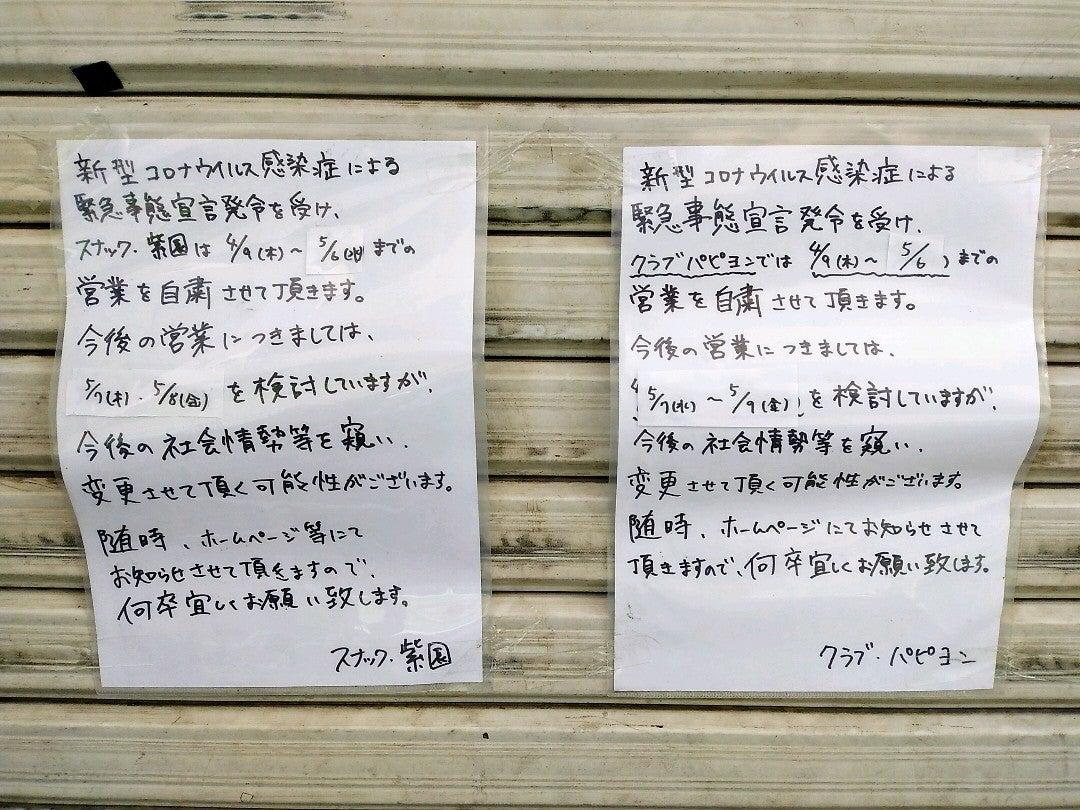 新型コロナウイルス感染症による
緊急事態宣言発令を受け、
スナック・紫園は 4/9(木)〜 5/6 までの
営業を自粛させて頂きます。
今後の営業につきましては、
5/7(木)・5/8(金)を検討していますが、
今後の社会情勢等を窺い、
変更させて頂く可能性がございます。
随時、ホームページ等にて
お知らせさせて頂きますので、
何卒宜しくお願い致します。
スナック・紫園
新型コロナウイルス感染症による
緊急事態宣言発令を受け、
クラブパピヨンでは 4/9(木)〜 5/6 ) までの
営業を自粛させて頂きます。
今後の営業につきましては、
5/7(水)〜5/9(金)を検討していますが、
今後の社会情勢等を窺い、
変更させて頂く可能性がございます。
随時、ホームページにてお知らせさせて
頂きますので、何卒宜しくお願い致します。
クラブ・パピヨン